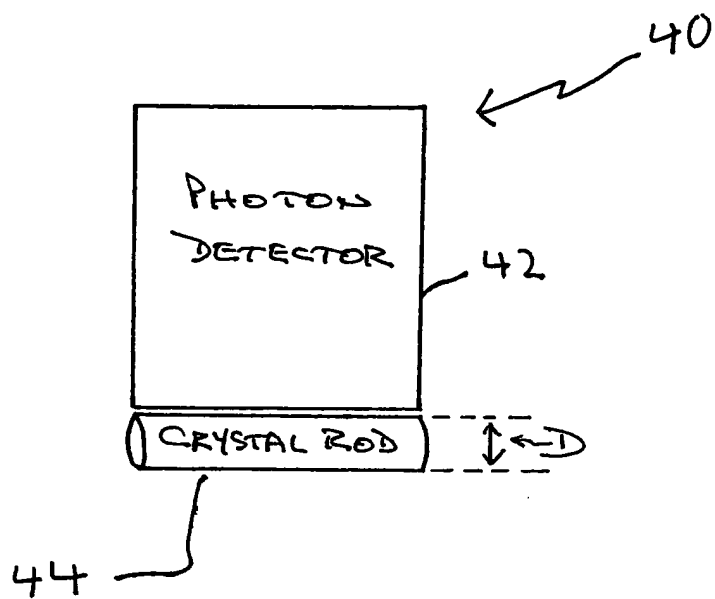 40
PHOTON
DETECTOR
42
CRYSTAL ROD
D
44